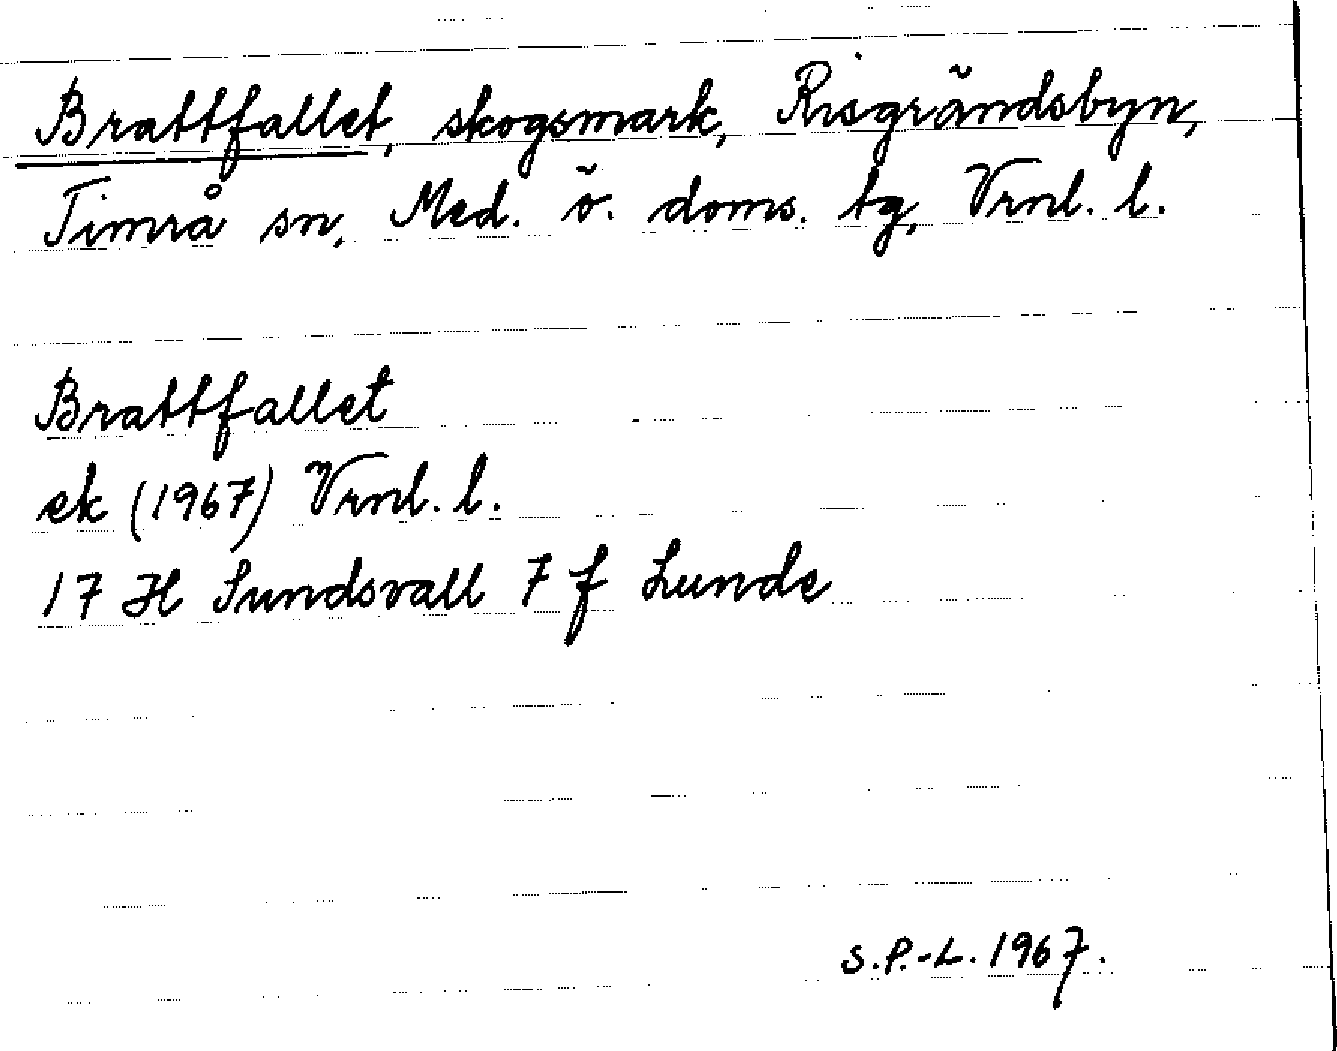 Brattfallet, skogsmark, Risgrändsbyn,
Timrå sn, Med. ö. doms. tg, Vrnl. l.
Brattfallet
ek (1967) Vrnl. l.
17 H Sundsvall 7 f Lunde
S.P.-L. 1967.